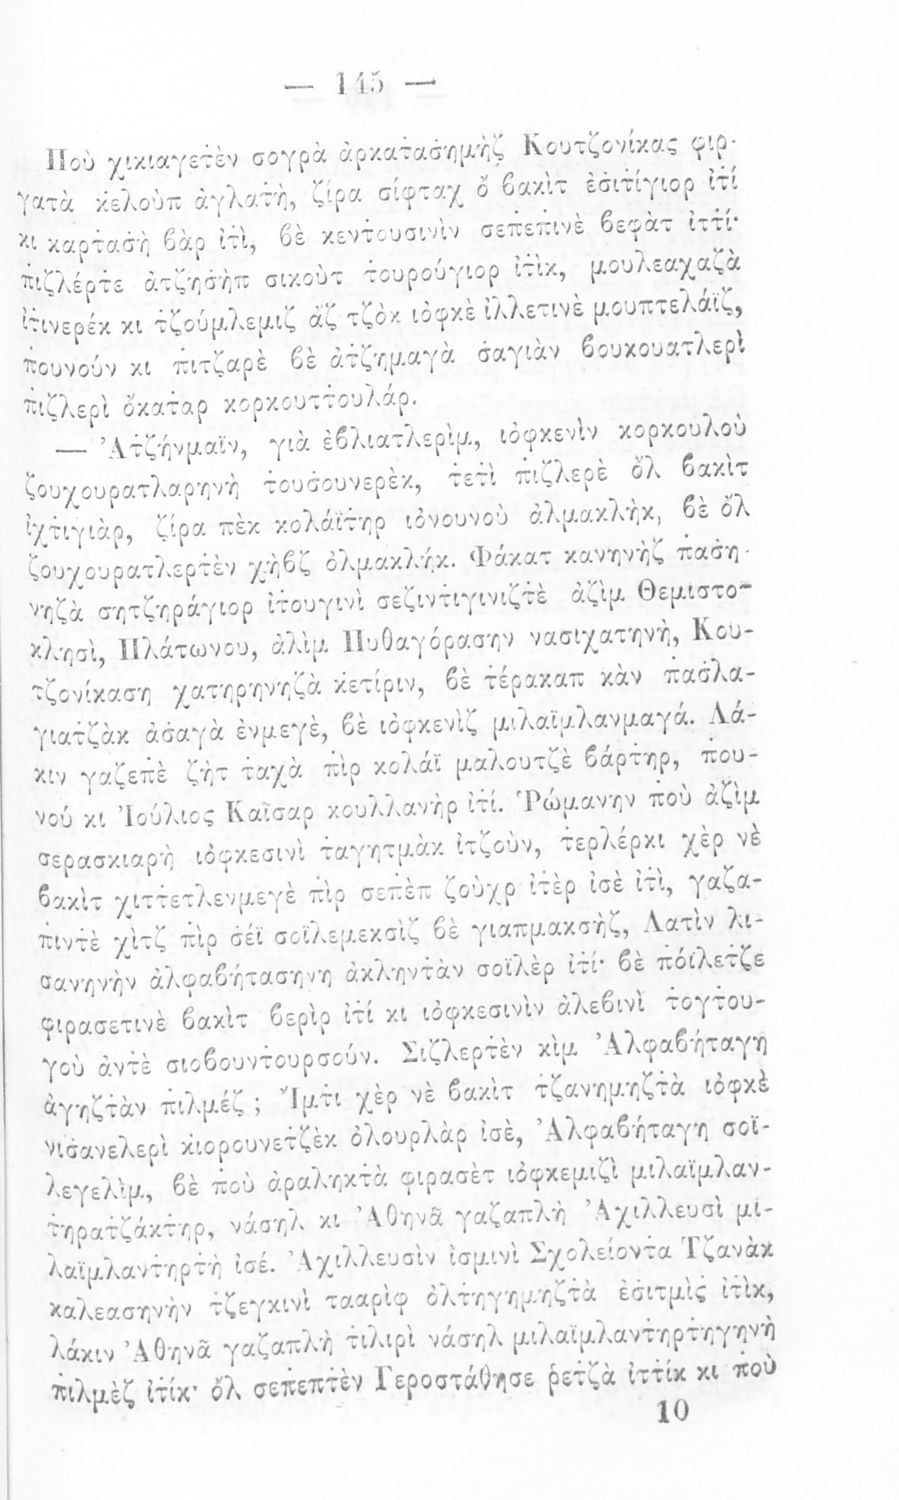 — 145 —
Ποὺ χικιαγετὲν σογρὰ ἀρκατασ̇ημὴζ Κουτζονίκας φιρ-
γατὰ κ̇ελοὺπ ἀγλατ̇ὴ, ζίρα σίφταχ ὄ βακὶτ ἐσ̇ιτ̇ίγιορ ἰτ̇ί
κι καρτ̇ασ̇ὴ βὰρ ἰτ̇ὶ, βὲ κεντ̇ουσινὶν σεπ̇επ̇ινὲ βεφὰτ ἰττ̇ί·
π̇ιζλέρτ̇ε ἀτζησ̇ὴπ σικοὺτ τ̇ουρούγιορ ἰτ̇ὶκ, μουλεαχαζὰ
ἰτ̇ινερέκ κι τ̇ζούμλεμιζ ἂζ τζὸκ ἰὀφκὲ ἰλλετινὲ μουπτελάϊζ,
π̇ουνούν κι π̇ιτζαρὲ βὲ ἀτ̇ζημαγὰ σ̇αγιὰν βουκουατλερὶ
π̇ιζλερὶ ὄκατ̇αρ κορκουττ̇ουλάρ.
— Ἀτ̇ζήνμαϊν, γιὰ ἐβλιατλερὶμ, ἰὀφκενὶν κορκουλοὺ
ζουχουρατλαρηνὴ τ̇ουσ̇ουνερὲκ, τ̇ετ̇ὶ π̇ιζλερὲ ὂλ βακὶτ
ἰχτιγιὰρ, ζίρα πὲκ κολάϊτ̇ηρ ἰὀνουνοὺ ἀλμακλὴκ, βὲ ὂλ
ζουχουρατλερτ̇ὲν χὴβζ ὀλμακλήκ. Φάκατ κανηνὴζ π̇ασ̇η-
νηζὰ σητζηράγιορ ἰτ̇ουγινὶ σεζιντ̇ιγινιζτ̇ὲ ἀζὶμ Θεμιστο-
κλησὶ, Πλάτωνου, ἀλὶμ Πυθαγόρασην νασιχατηνὴ, Κου-
τζονίκαση χατηρηνηζὰ κ̇ετίριν, βὲ τέρακαπ κὰν π̇ασ̇λα-
γιατζὰκ ἀσ̇αγὰ ἐνμεγὲ, βὲ ἰὀφκενὶζ μιλαϊμλανμαγά. Λά-
κιν γαζεπὲ ζὴτ τ̇αχὰ π̇ὶρ κολάϊ μαλουτζὲ βάρτ̇ηρ, π̇ου-
νού κι Ἰούλιος Καῖσαρ κουλλανὴρ ἰτ̇ί. Ῥώμανην π̇οὺ ἀζὶμ
σερασκιαρὴ ἰὀφκεσινὶ τ̇αγητμὰκ ἰτζοὺν, τ̇ερλέρκι χὲρ νὲ
βακὶτ χιττ̇ετλενμεγὲ π̇ὶρ σεπ̇ὲπ ζοὺχρ ἰτ̇ὲρ ἰσὲ ἰτ̇ὶ, γαζα-
π̇ιντ̇ὲ χὶτζ π̇ὶρ σ̇έϊ σοϊλεμεκσὶζ βὲ γιαπμακσὴζ, Λατὶν λι-
σανηνὴν ἀλφαβήτασηνη ἀκληντ̇ὰν σοϊλὲρ ἰτ̇ί· βὲ π̇όϊλετ̇ζε
φιρασετινὲ βακὶτ βερὶρ ἰτ̇ί κι ἰὀφκεσινὶν ἀλεβινὶ τ̇ογτ̇ου-
γοὺ ἀντ̇ὲ σιοβουντ̇ουρσούν. Σιζλερτ̇ὲν κὶμ Ἀλφαβήταγη
ἀγηζτ̇ὰν π̇ιλμέζ ; Ἴμτ̇ι χὲρ νὲ βακὶτ τ̇ζανημηζτ̇ὰ ἰὀφκὲ
νισ̇ανελερὶ κ̇ιορουνετ̇ζὲκ ὀλουρλὰρ ἰσὲ, Ἀλφαβήταγη σοϊ-
λεγελὶμ, βὲ π̇οὺ ἀραληκτ̇ὰ φιρασὲτ ἰὀφκεμιζὶ μιλαϊμλαν-
τ̇ηρατ̇ζάκτ̇ηρ, νάσηλ κι Ἀθηνᾶ γαζαπλὴ Ἀχιλλευσὶ μι-
λαϊμλαντ̇ηρτ̇ὴ ἰσέ. Ἀχιλλευσὶν ἰσμινὶ Σχολείοντ̇α Τζανὰκ
καλεασηνὴν τ̇ζεγκινὶ τααρὶφ ὀλτ̇ηγημηζτ̇ὰ ἐσ̇ιτμὶσ̇ ἰτ̇ὶκ,
λάκιν Ἀθηνᾶ γαζαπλὴ τ̇ιλιρὶ νάσηλ μιλαϊμλαντ̇ηρτ̇ηγηνὴ
π̇ιλμὲζ ἰτ̇ίκ· ὂλ σεπ̇επτ̇ὲν Γεροστάθησε ῥετ̇ζὰ ἰττ̇ίκ κι π̇οὺ
10